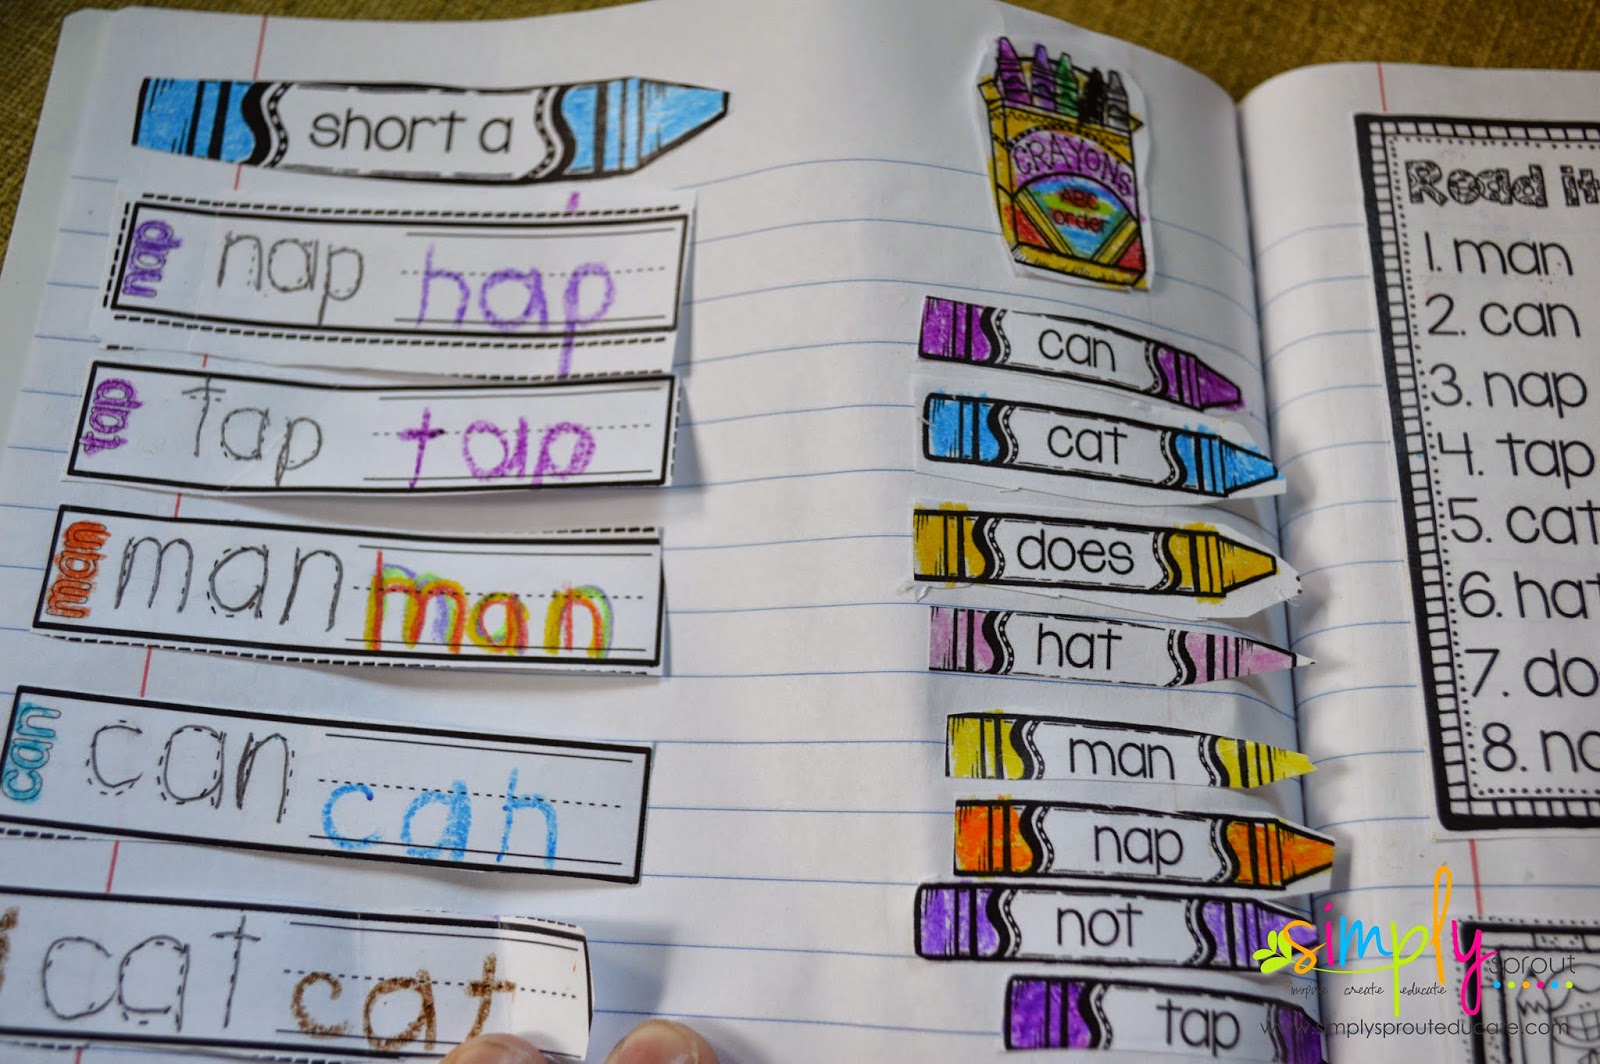 short a
nap nap nap
tap tap tap
man man man
can can can
cat cat
CRAYONS
ABC
order
can
cat
does
hat
man
nap
not
tap
Read it
1. man
2. can
3. nap
4. tap
5. cat
6. hat
7. do
8. no
simply
sprout
inspire create educate
www.simplysprouteducate.com